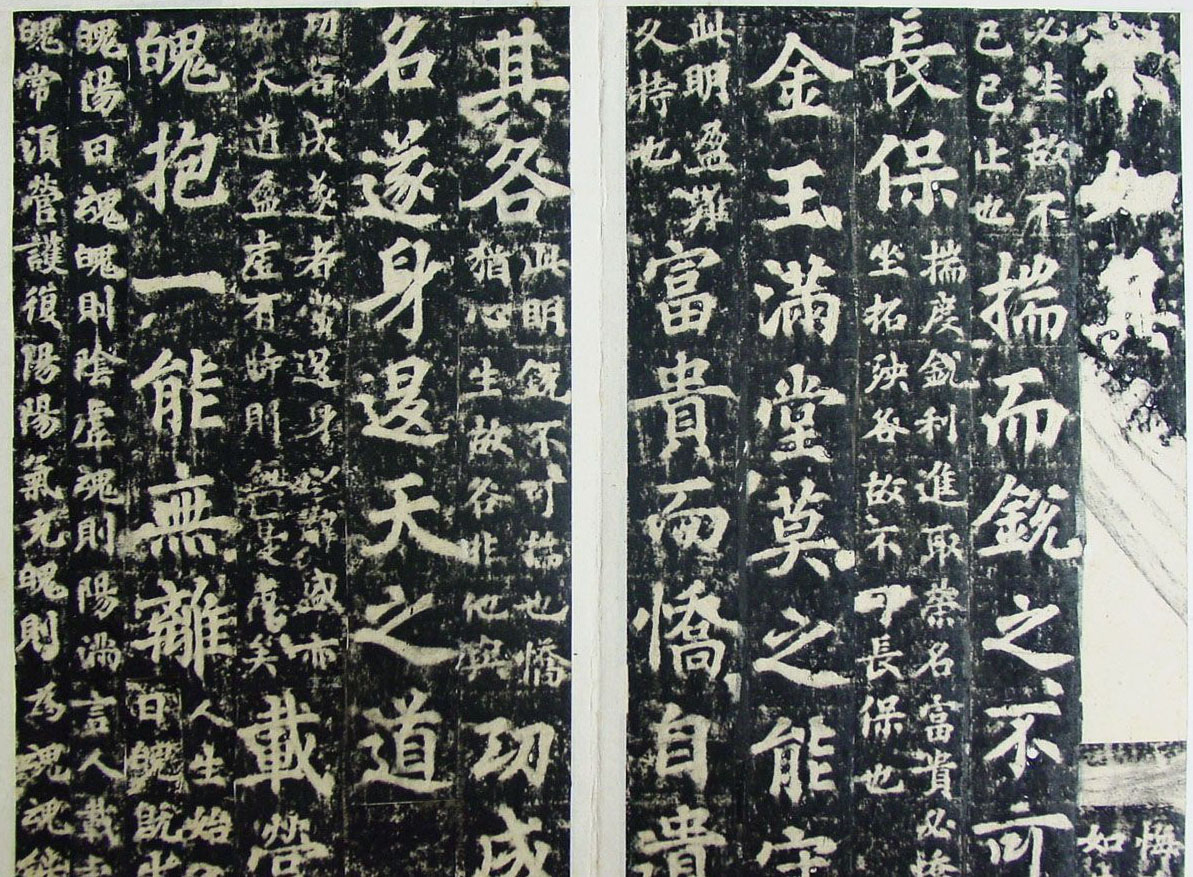 不如其
悔
如
必生故不
已已止也
揣而銳之不可
長保
揣度銳利進取榮名富貴必憍
坐招殃咎故不可長保也
金玉滿堂莫之能守
此明盈難
久持也
富貴而憍自遺
其咎
此明銳不可揣也憍
猶心生故咎非他與
功成
名遂身退天之道
功名成遂者當退身以辭盛亦
如天道盈虛有時則無憂患矣
載營
魄抱一能無離
人生始
曰魄既生
魄陽曰魂魄則陰虛魂則陽滿言人載虛
魄常須營護復陽陽氣充魄則為魂魂能